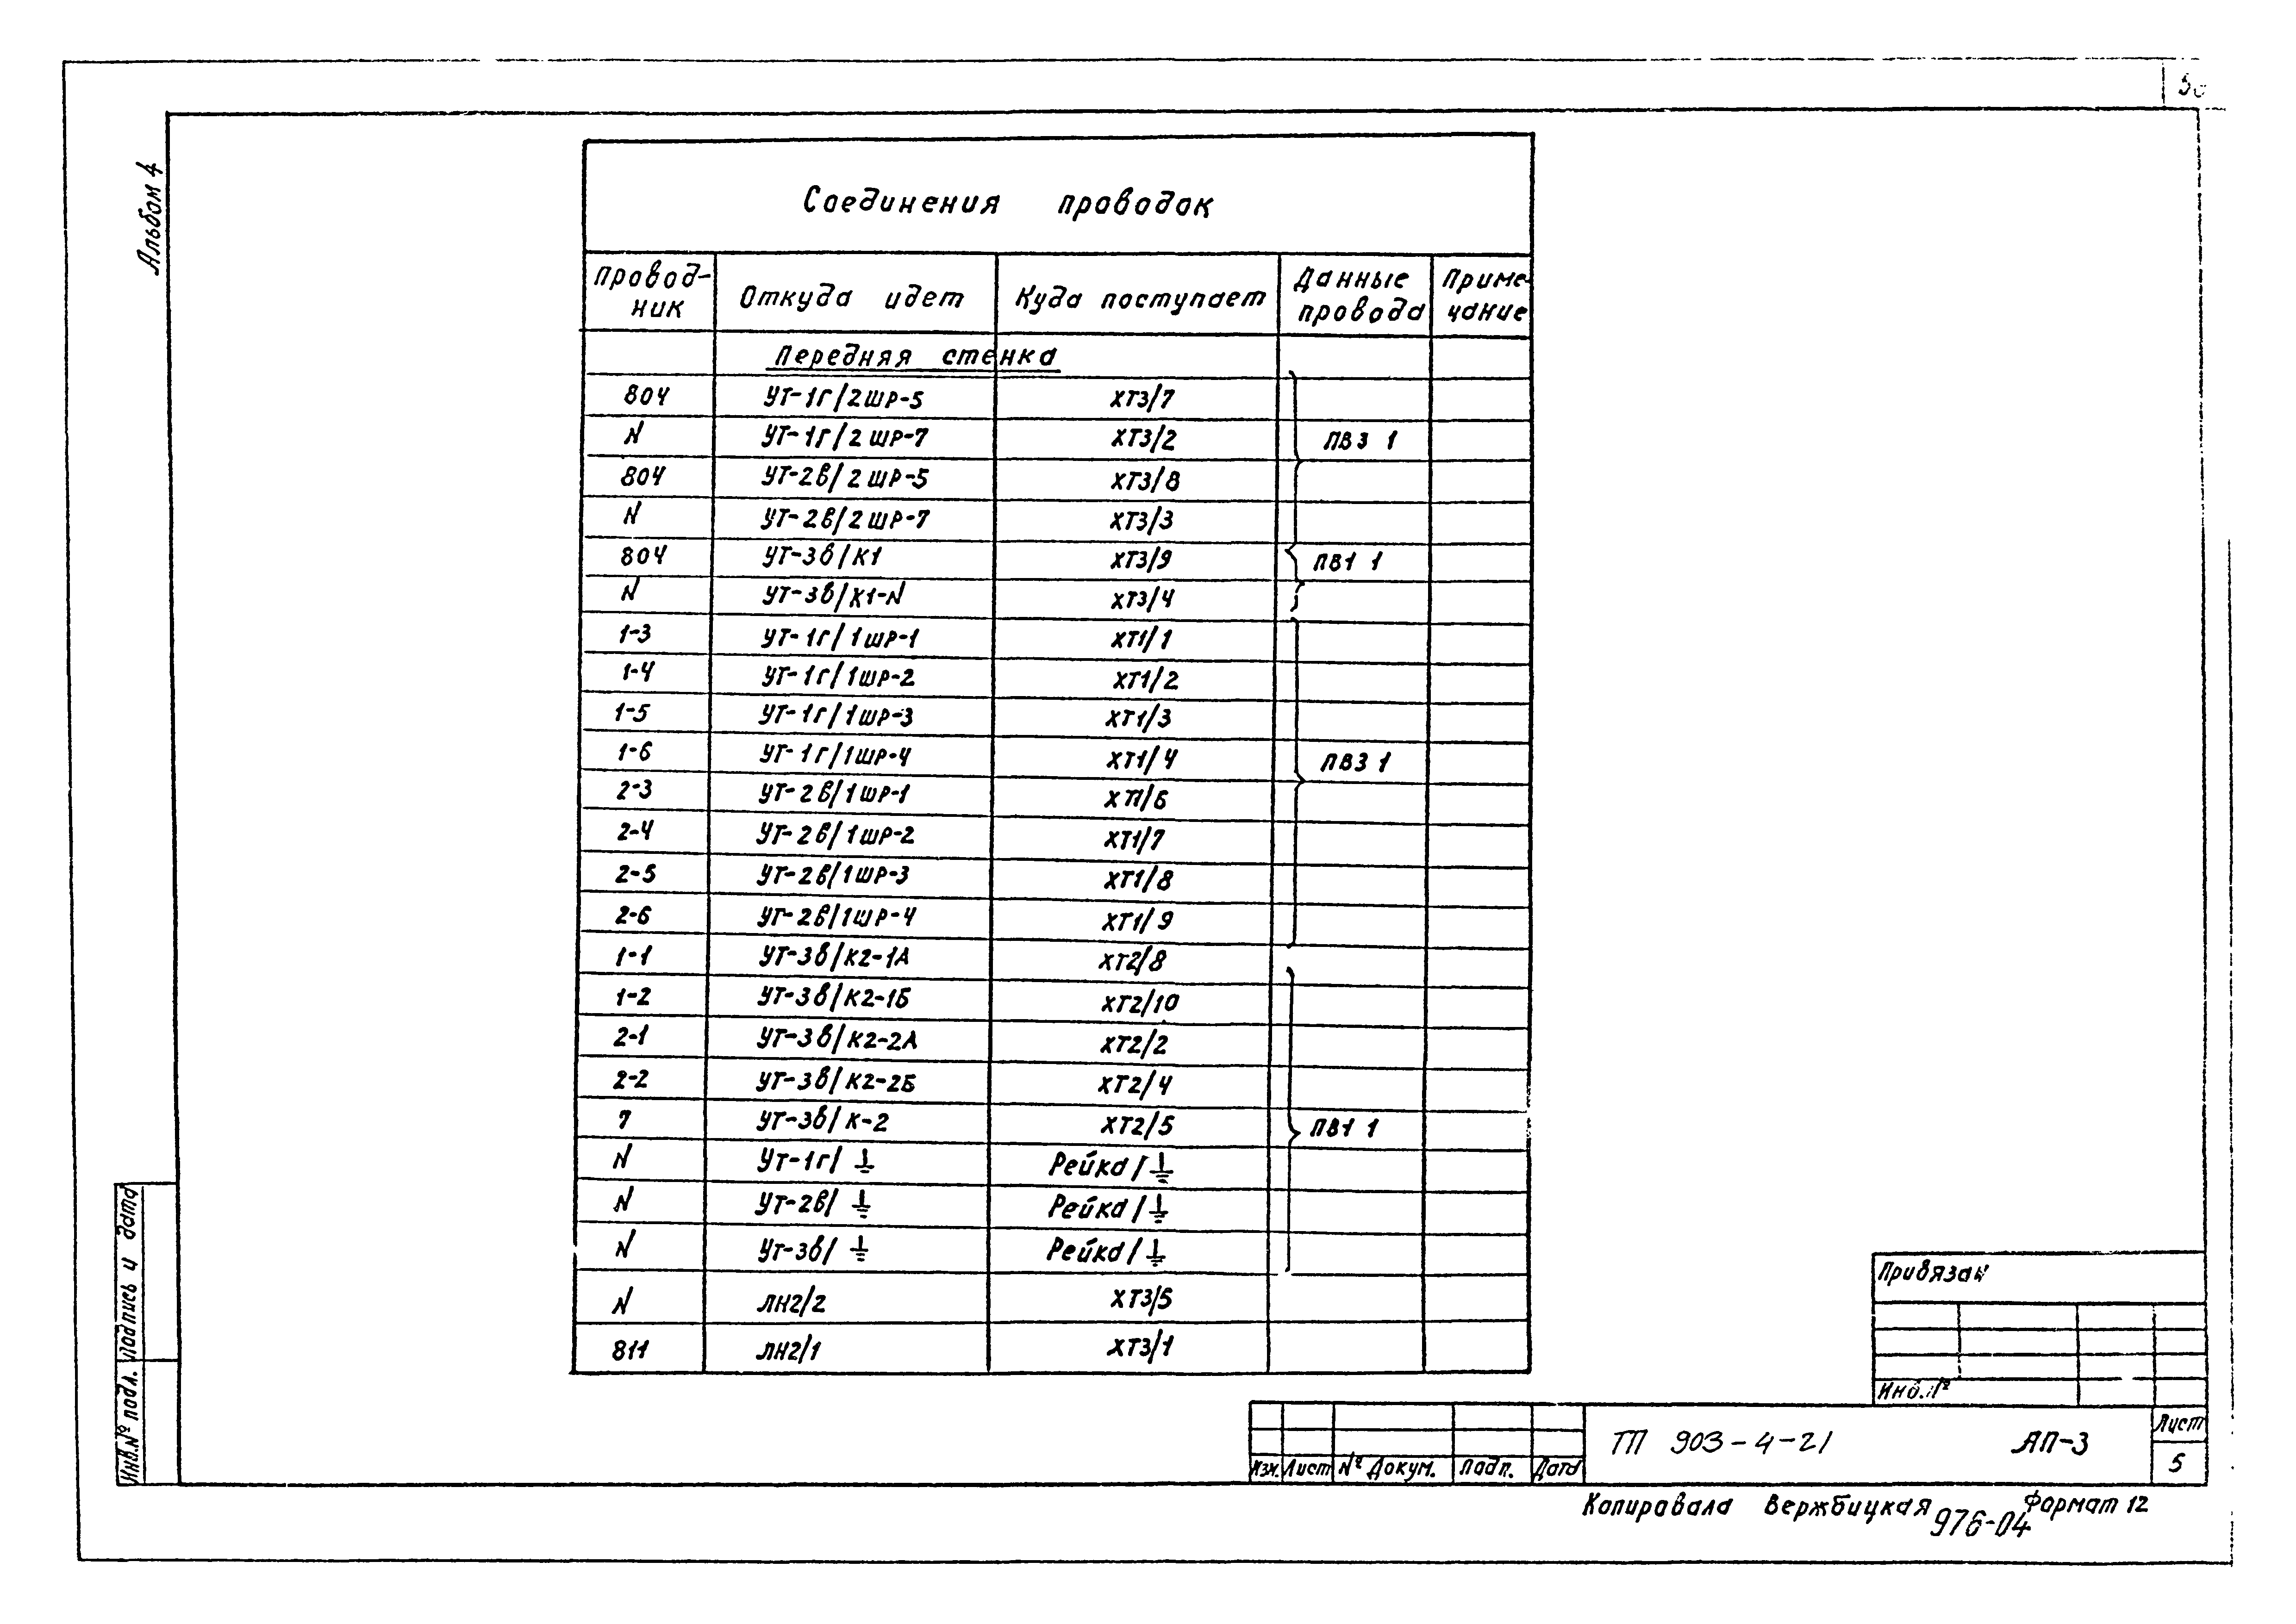 Альбом 4
Соединения проводок
Провод-
ник
Откуда идет
Куда поступает
Данные
провода
Приме-
чание
Передняя стенка
804 УТ-1г/2ШР-5 ХТ3/7
N УТ-1г/2ШР-7 ХТ3/2 ПВ3 1
804 УТ-2в/2ШР-5 ХТ3/8
N УТ-2в/2ШР-7 ХТ3/3
804 УТ-3в/К1 ХТ3/9 ПВ1 1
N УТ-3в/К1-N ХТ3/4
1-3 УТ-1г/1ШР-1 ХТ1/1
1-4 УТ-1г/1ШР-2 ХТ1/2
1-5 УТ-1г/1ШР-3 ХТ1/3
1-6 УТ-1г/1ШР-4 ХТ1/4 ПВ3 1
2-3 УТ-2в/1ШР-1 ХТ1/6
2-4 УТ-2в/1ШР-2 ХТ1/7
2-5 УТ-2в/1ШР-3 ХТ1/8
2-6 УТ-2в/1ШР-4 ХТ1/9
1-1 УТ-3в/К2-1А ХТ2/8
1-2 УТ-3в/К2-1Б ХТ2/10
2-1 УТ-3в/К2-2А ХТ2/2
2-2 УТ-3в/К2-2Б ХТ2/4
7 УТ-3в/К-2 ХТ2/5 ПВ1 1
N УТ-1г/⏚ Рейка/⏚
N УТ-2в/⏚ Рейка/⏚
N УТ-3в/⏚ Рейка/⏚
N ЛН2/2 ХТ3/5
811 ЛН2/1 ХТ3/1
Инв.№ подл. Подпись и дата
Привязан
Инв.№
Изм. Лист № Докум. Подп. Дата
ТП 903-4-21 АП-3
Лист
5
Копировала Вержбицкая Формат 12
976-04